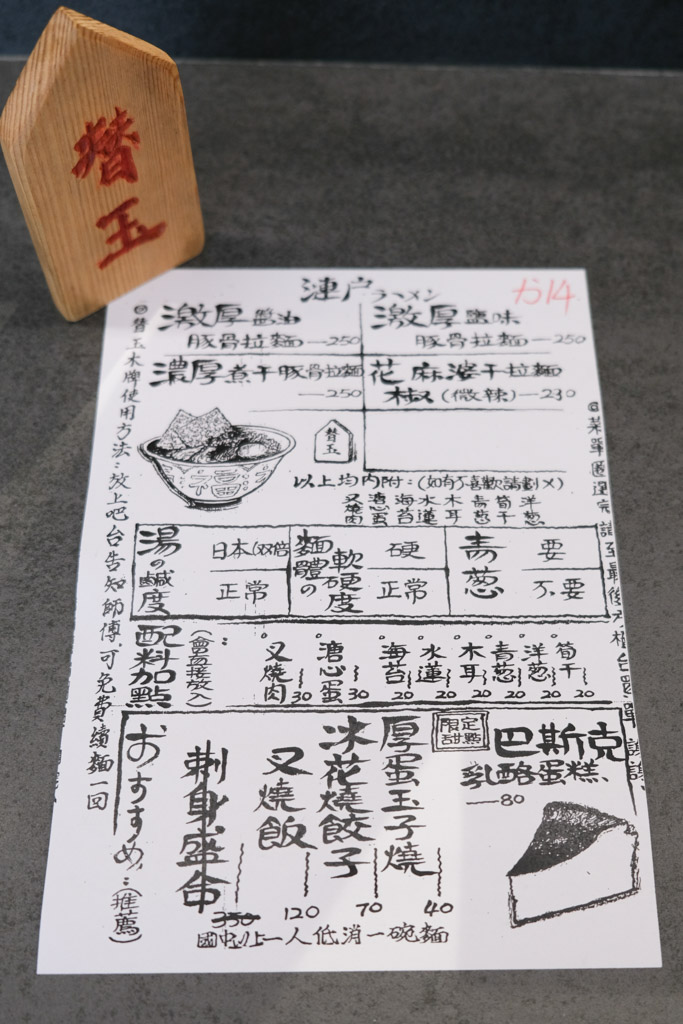 替玉
漣户ラーメン
か14
激厚醬油
豚骨拉麵—250
激厚鹽味
豚骨拉麵—250
濃厚煮干豚骨拉麵
—250
花椒麻婆干拉麵
(微辣)—230
替玉
福
以上均內附:(如有不喜歡請劃X)
叉燒肉 溏心蛋 海苔 水蓮 木耳 青蔥 筍干 洋蔥
湯の鹹度 日本(双倍) 正常
麵體の軟硬度 硬 正常
青蔥 要 不要
配料加點
(會直接放入):
叉燒肉 30
溏心蛋 30
海苔 20
水蓮 20
木耳 20
青蔥 20
洋蔥 20
筍干 20
おすすめ:(推薦)
刺身盛合 350
叉燒飯 120
冰花燒餃子 70
厚蛋玉子燒 40
限定甜點
巴斯克
乳酪蛋糕
—80
國中以上一人低消一碗麵
◎替玉木牌使用方法:放上吧台告知師傅,可免費續麵一回
◎菜單圈選完請至最後方櫃台買單 謝謝